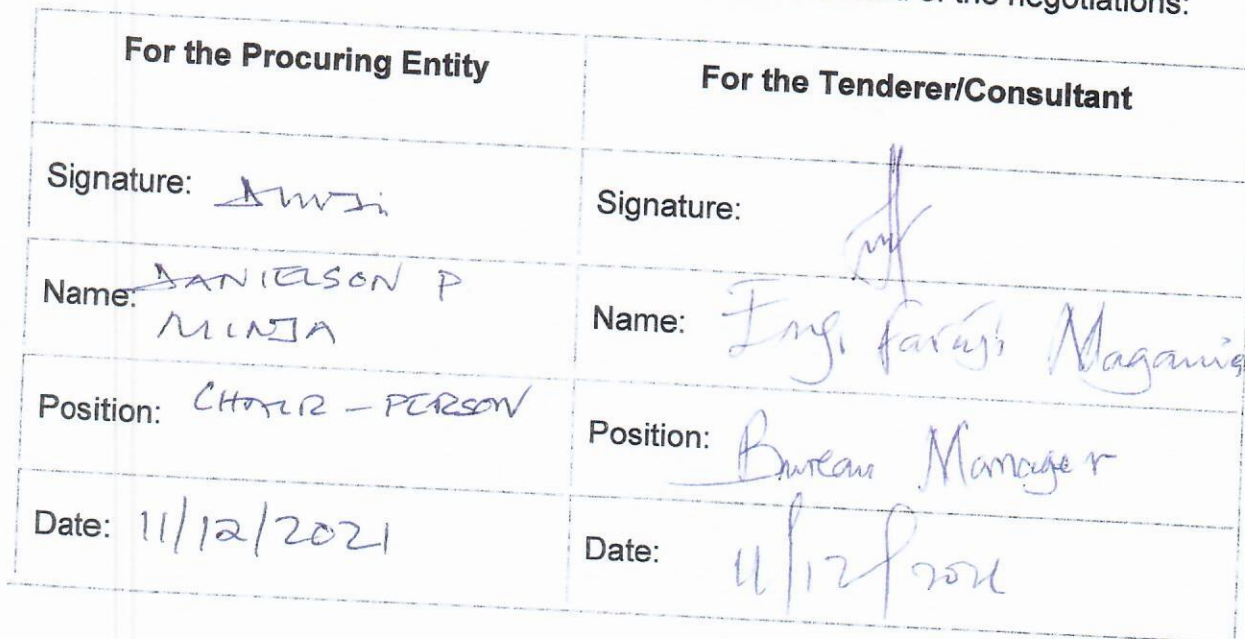 of the negotiations:
For the Procuring Entity
For the Tenderer/Consultant
Signature:
Signature:
Name: DANIELSON P
MINJA
Name: Eng. Faraji
Position: CHAIR - PERSON
Position: Bureau Manager
Date: 11/12/2021
Date: 11/12/2021